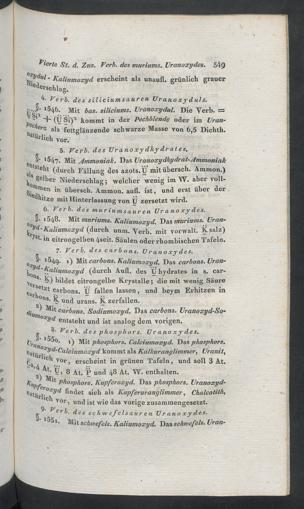 Vierte St. d. Zus. Verb. des muriums. Uranoxydes. 549
oxydul-Kaliumoxyd erscheint als unaufl. grünlich grauer
Niederschlag.
4. Verb. des siliciumsauren Uranoxyduls.
§. 1546. Mit bas. siliciums. Uranoxydul. Die Verb. =
kommt in der Pechblende oder im Uran-
als fettglänzende schwarze Masse von 6,5 Dichth.
natürlich vor.
5. Verb. des Uranoxydhydrates.
§. 1547. Mit Ammoniak. Das Uranoxydhydrat-Ammoniak
entsteht (durch Fällung des azots. Ü mit übersch. Ammon.)
als gelber Niederschlag; welcher wenig im W. aber voll-
kommen in übersch. Ammon. aufl. ist, und erst über der
Siedhitze mit Hinterlassung von Ü zersetzt wird.
6. Verb. des muriumsauren Uranoxydes.
§. 1548. Mit muriums. Kaliumoxyd. Das muriums. Uran-
oxyd-Kaliumoxyd (durch unm. Verb. mit vorwalt. K salz)
kryst. in citrongelben 4seit. Säulen oder rhombischen Tafeln.
7. Verb. des carbons. Uranoxydes.
§. 1549. 1) Mit carbons. Kaliumoxyd. Das carbons. Uran-
oxyd-Kaliumoxyd (durch Aufl. des Ü hydrates in s. car-
bons. K) bildet citrongelbe Krystalle; die mit wenig Säure
versetzt carbons. Ü fallen lassen, und beym Erhitzen in
carbons. K und urans. K zerfallen.
2) Mit carbons. Sodiumoxyd. Das carbons. Uranoxyd-So-
diumoxyd entsteht und ist analog dem vorigen.
8. Verb. des phosphors. Uranoxydes.
§. 1550. 1) Mit phosphors. Calciumoxyd. Das phosphors.
Uranoxyd-Calciumoxyd kommt als Kalkuranglimmer, Uranit,
natürlich vor, erscheint in grünen Tafeln, und soll 3 At.
Ca, 4 At. Ü, 8 At. P und 48 At. W. enthalten.
2) Mit phosphors. Kupferoxyd. Das phosphors. Uranoxyd-
Kupferoxyd findet sich als Kupferuranglimmer, Chalcolith,
natürlich vor, und ist wie das vorige zusammengesetzt.
9. Verb. des schwefelsauren Uranoxydes.
§. 1551. Mit schwefels. Kaliumoxyd. Das schwefels. Uran-